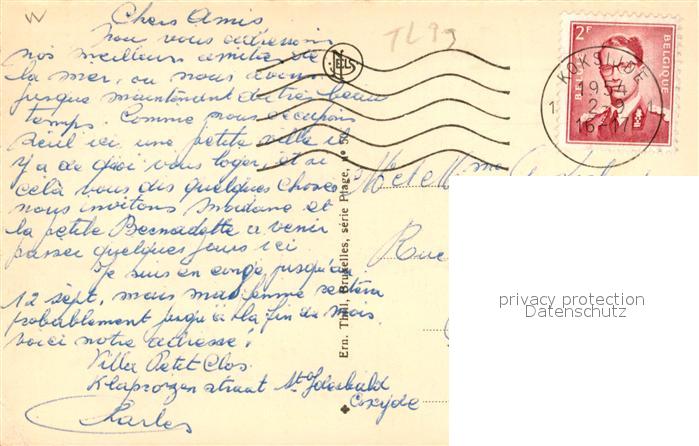 Chers Amis
nous vous adressons
nos meilleurs amitiés de
la mer, où nous avons
jusque maintenant du très beau
temps. Comme nous occupons
seul ici une petite villa il
y a de quoi vous loger, et si
celà vous dis quelques choses
nous invitons Madame et
la petite Bernadette a venir
passer quelques jours ici.
Je suis en congé jusqu'au
12 sept, mais ma femme restera
probablement jusqu'à la fin du mois.
voici notre adresse!
Villa Petit Clos.
Klaprozen straat St Idesbald
Coxyde
Charles
TL 93
NELS
2F
BELGIE BELGIQUE
KOKSIJDE
1954
1 2-9 1
16-17
Ern. Thill, Bruxelles, série Plage, n° 50
M et Mme
Rue
privacy protection
Datenschutz